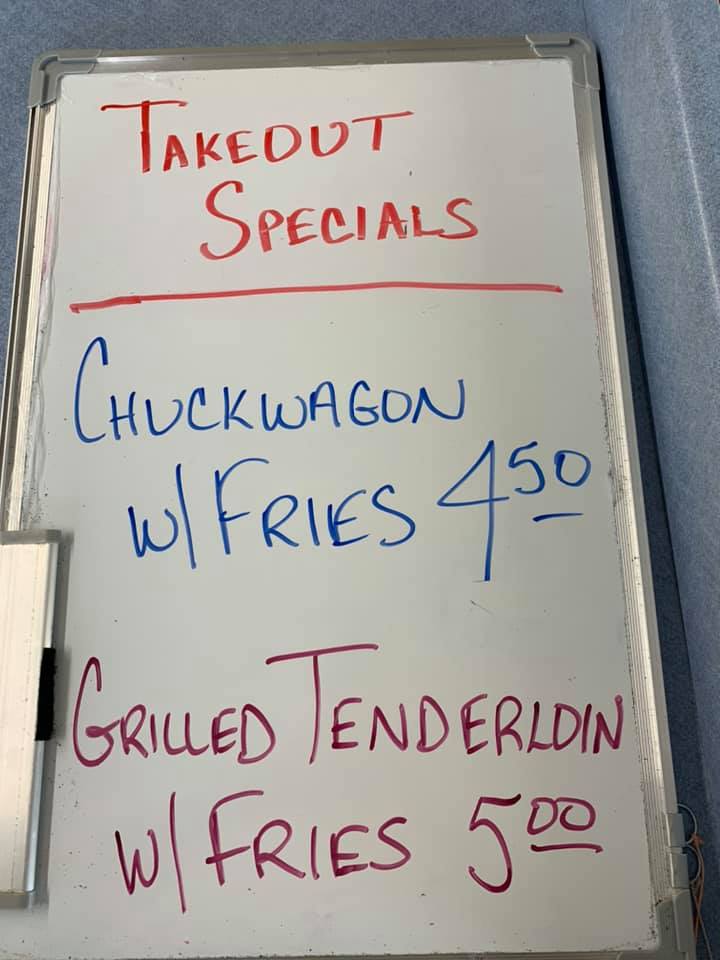 TAKEOUT
SPECIALS
CHUCKWAGON
W/ FRIES 4 50
GRILLED TENDERLOIN
W/ FRIES 5 00